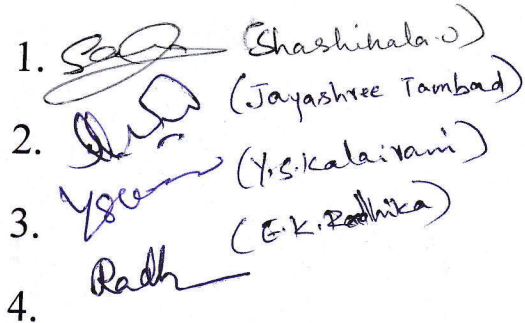 1. (Shashikala.J)
2. (Jayashree Tambad)
3. (Y.S.Kalairani)
4. Radh (E.K.Radhika)